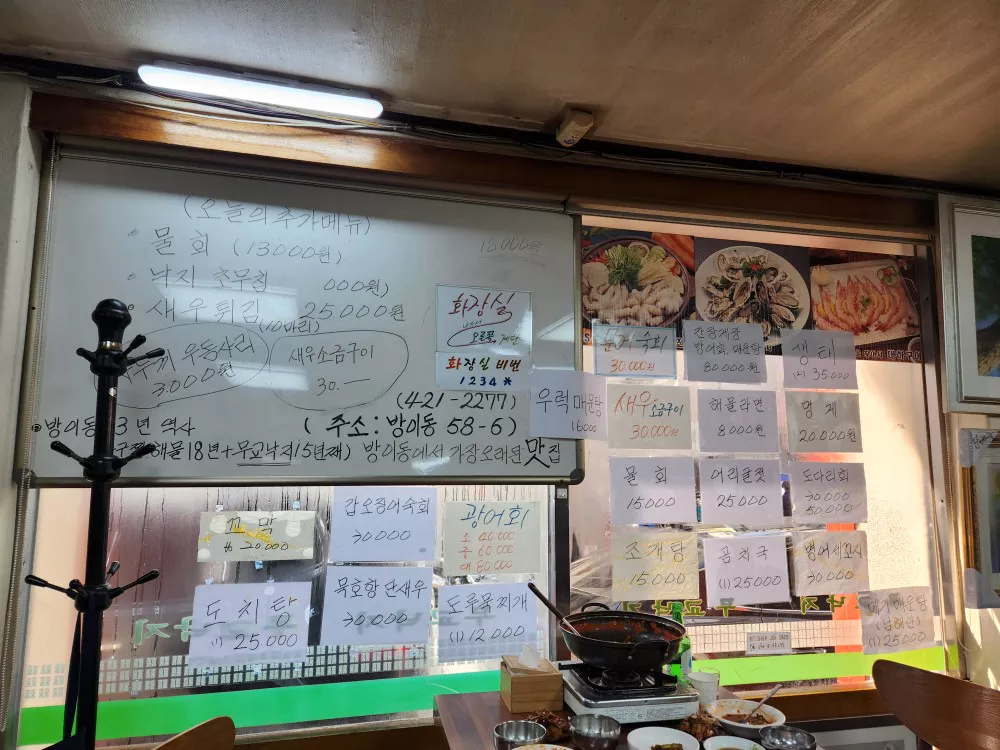 (오늘의 추가메뉴)
• 물회 (13000원)
18,000원
• 낙지 초무침 000원)
• 새우튀김 25000원
(10마리)
우동사리
3000원
새우소금구이
30.—
화장실
오른쪽 계단
화장실 비번
1234*
(421-2277)
•방이동 3년 역사
(주소: 방이동 58-6)
해물18년+무교낙지15년째) 방이동에서 가장오래된 맛집
꼬막
20.000
갑오징어숙회
30.000
광어회
소 40.000
중 60.000
대 80.000
도치탕
(1) 25.000
묵호항 단새우
30.000
도루묵찌개
(1) 12.000
숙회
30.000원
간장게장
방어회, 매운탕
80.000원
생태
(1) 35.000
우럭매운탕
16000
새우소금구이
30.000원
해물라면
8.000원
멍게
20.000원
물회
15000
어리굴젓
25000
도다리회
30.000
50.000
조개탕
15.000
곰치국
(1) 25000
병어세꼬시
30.000
매운탕
(1) 25.000